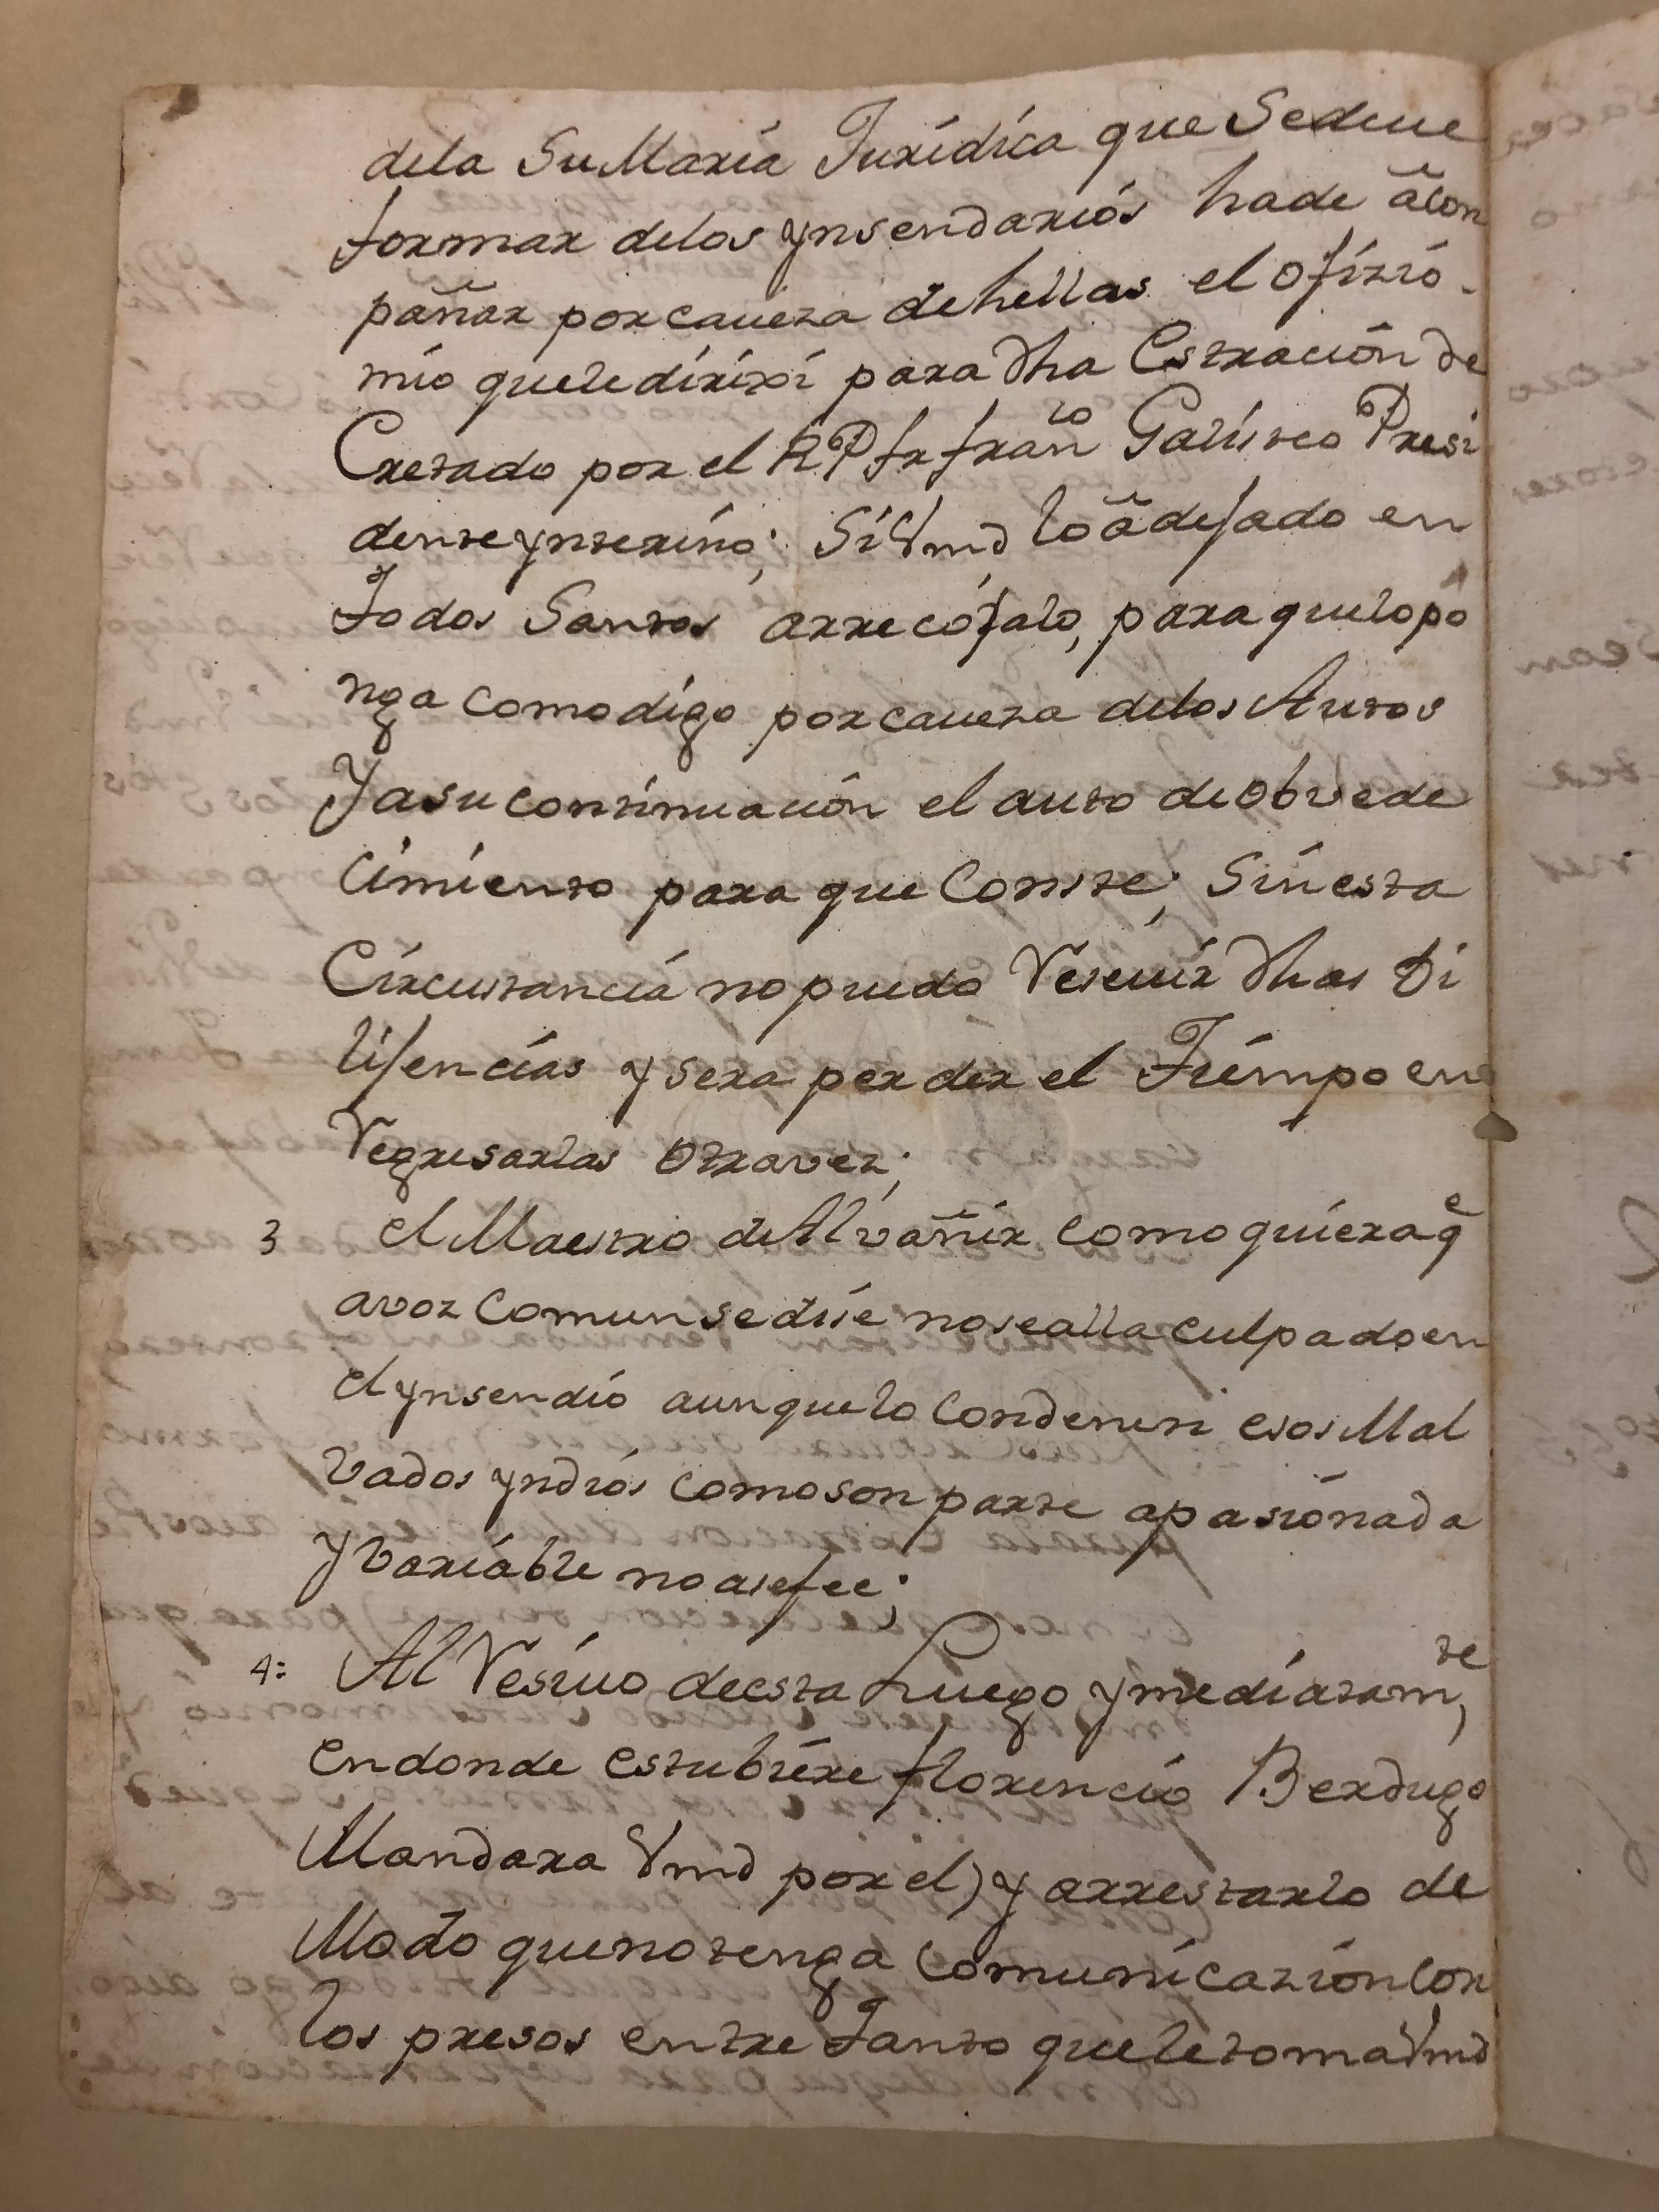 dela SuMaria Juridica que Sedeue
formar delos ynsendarios hade acon
pañar porcaueza dehellas el ofizio
mio queledirixi para dha Estracion de
Cretado por el RP fr fran.co Galisteo Presi
denteynterino; Si Vmd lo a dejado en
Todos Santos arrecójalo, para quelopo
nga comodigo porcaueza delos Autos
Y asu continuacion el auto de obvede
cimiento para que Conste; Sin esta
Circustancia no puedo Reseuir dhas Di
lijencias y sera perder el Tiempo en
Regresarlas otravez;
3 el Maestro de Alvañir como quiera q.e
avoz Comun sedise nosealla culpadoen
el ynsendio aunquelo Condenen esos Mal
vados yndios comoson parte apasionada
y variable no asefee;
4: Al Resiuo deesta Luego ymediatam.te,
endonde estubiere florencio Berdugo
Mandara Vmd por el) y arrestarlo de
Modo quenotenga comunicazion con
los presos entre Tanto queletoma Vmd